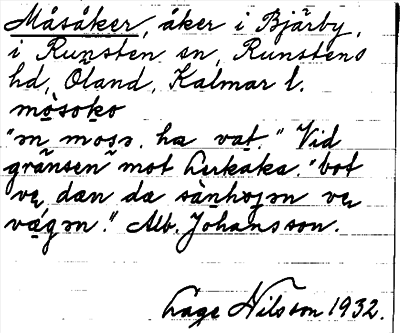 Måsåker, åker i Bjärby,
i Runsten sn, Runstens
hd, Öland, Kalmar l.
mòsoko
"ən mosə. ha vat." Vid
gränsen mot Lukaka. "bot
ve, dæn da sànhojən ve
vǽgən." Alb. Johansson.
Låge Nilsson 1932.